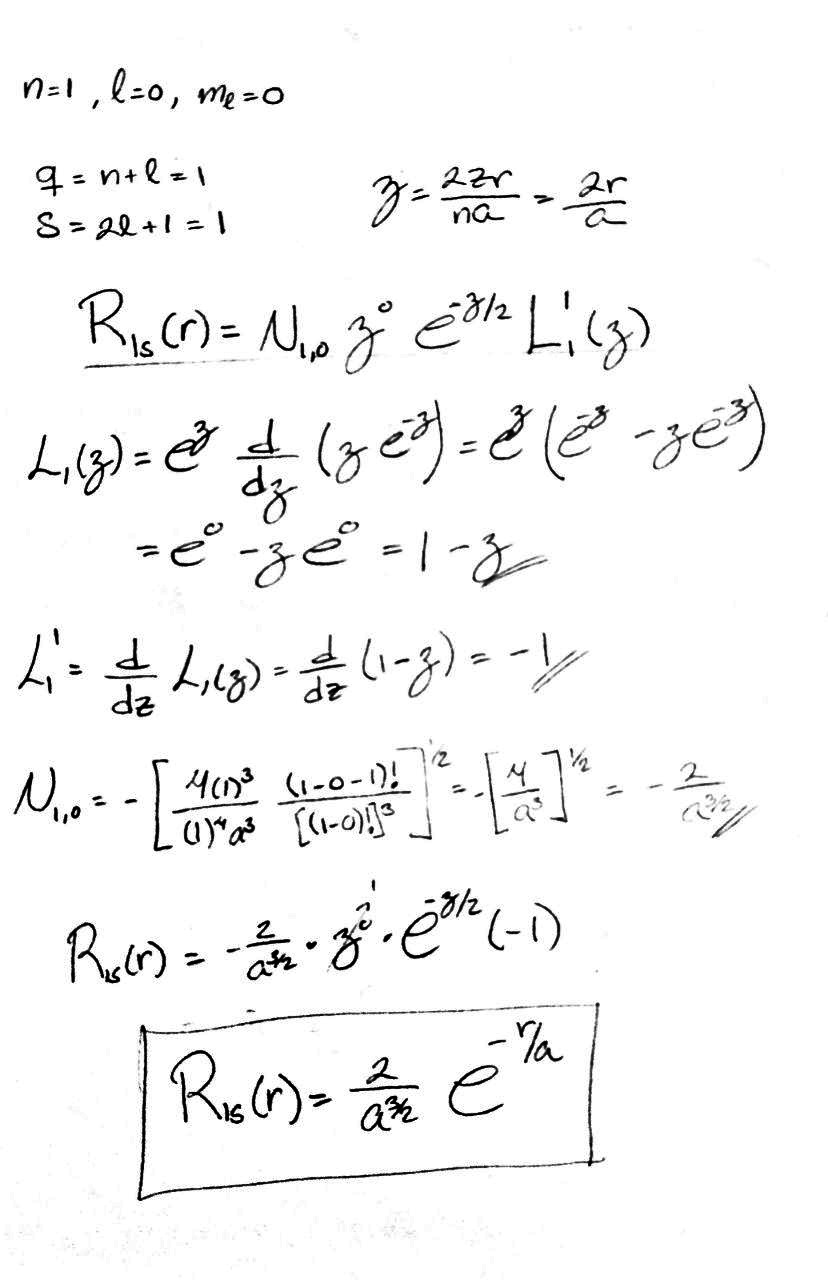 n=1, l=0, mₗ=0
q = n+l = 1
S = 2l+1 = 1
z = 2zr/na = 2r/a
R₁ₛ(r) = N₁,₀ z⁰ e^(-z/2) L₁¹(z)
L₁(z) = e^z d/dz (z e^(-z)) = e^z (e^(-z) - z e^(-z))
= e⁰ - z e⁰ = 1 - z
L₁¹ = d/dz L₁(z) = d/dz (1-z) = -1
N₁,₀ = - [4(1)³/(1)⁴a³ (1-0-1)!/[(1-0)!]³]^(1/2) = -[4/a³]^(1/2) = - 2/a^(3/2)
R₁ₛ(r) = - 2/a^(3/2) · z⁰ · e^(-z/2) (-1)
1
R₁ₛ(r) = 2/a^(3/2) e^(-r/a)